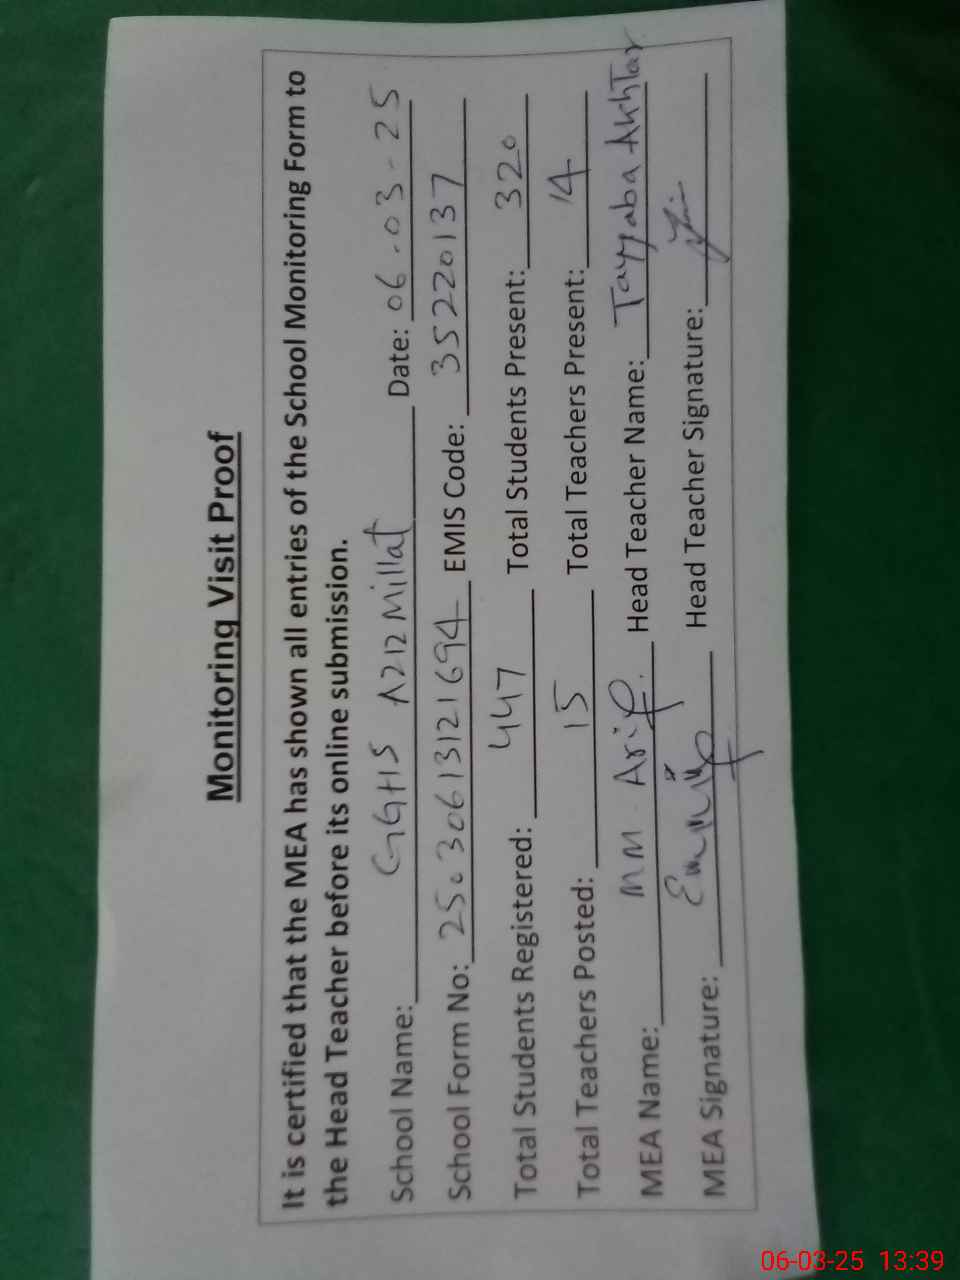 Monitoring Visit Proof
It is certified that the MEA has shown all entries of the School Monitoring Form to
the Head Teacher before its online submission.
School Name: GGHS AZIZ Millat Date: 06-03-25
School Form No: 25030613121694 EMIS Code: 35220137
Total Students Registered: 447 Total Students Present: 320
Total Teachers Posted: 15 Total Teachers Present: 14
MEA Name: MM Arif Head Teacher Name: Tayyaba Akhtar
MEA Signature: Head Teacher Signature:
06-03-25 13:39